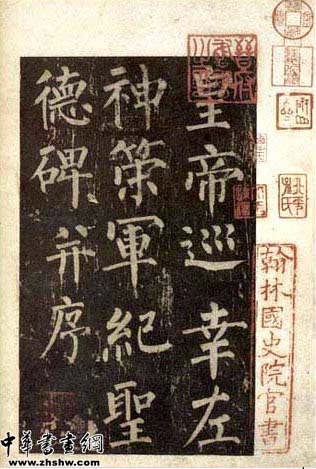 皇帝巡幸左
神策軍紀聖
德碑并序
翰林國史院官書
中華書畫網
www.zhshw.com